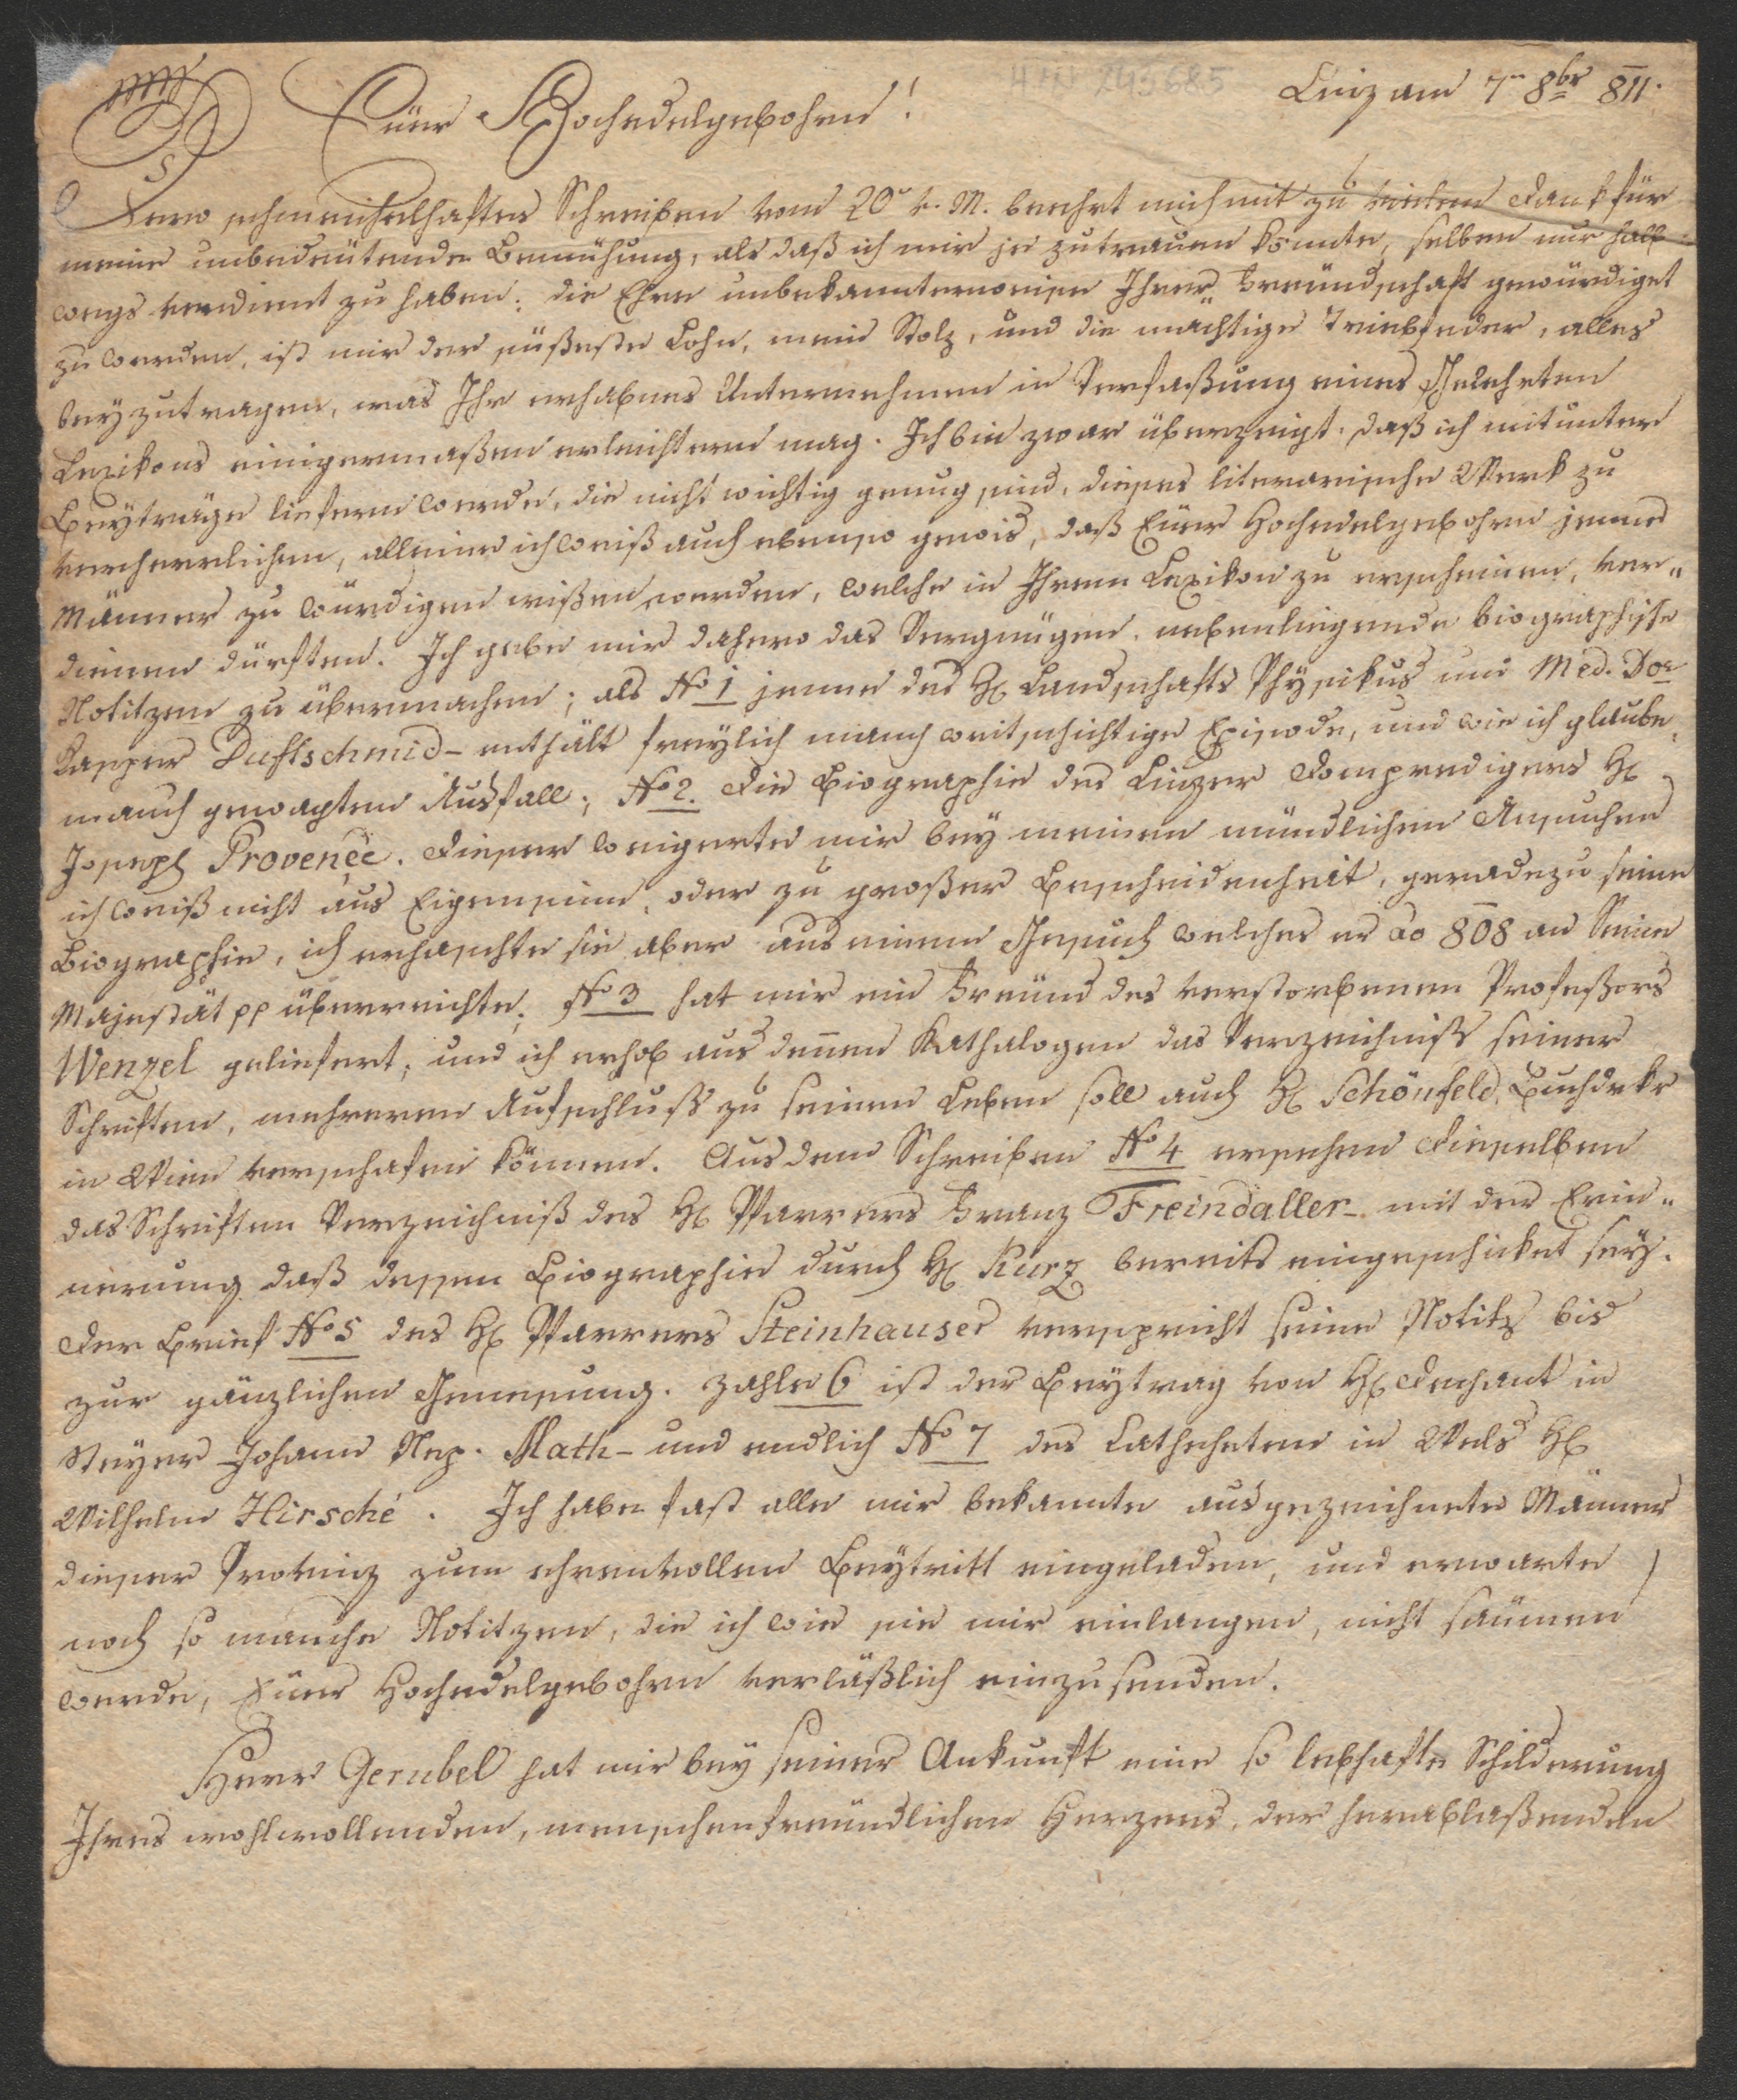 Linz am 7n 8br 811.
Euer Hochedelgebohrn!
Dero schmeichelhaftes Schreiben vom 20n v. M. beehrt mich mit zu vielem Dank für
meine unbedeutende Bemühung, als daß ich mir je zutrauen könnte, selben nur halb
wegs verdient zu haben: die Ehre unbekannterweise Ihrer Freundschaft gewürdiget
zu werden, ist mir der süßeste Lohn, mein Stolz, und die mächtige Triebfeder, alles
beyzutragen, was Ihr erhabnes Unternehmen in Verfaßung eines Gelehrten
Lexikons einigermaßen erleichtern mag. Ich bin zwar überzeigt, daß ich mitunter
Beyträge liefern werde, die nicht wichtig genug sind, dieses literarische Werk zu
verherrlichen, alleine ich weiß auch ebenso gewis, daß Euer Hochedelgebohrn jene
Männer zu würdigen wißen werden, welche in Ihrem Lexikon zu erscheinen, ver„
dienen dürften. Ich gebe mir dahero das Vergnügen, nebenliegende biographische
Notitzen zu übermachen; als No 1 jenne des H. Landschafts Physikus und Med. Dor
Kasper Duftschmid - enthält freylich manch weitschichtige Episode, und wie ich glaube,
manch gewagten Ausfall; No 2. Die Biographie des Linzer Dompredigers H.
Joseph Provençe. Dieser weigerte mir bey meinen mündlichen Ansuchen
ich weiß nicht aus Eigensinn, oder zu großer Bescheidenheit, geradezu seine
Biographie, ich erhaschte sie aber aus einem Gesuch welches er ao 808 an Seine
Majestät pp überreichte; No 3 hat mir ein Freund des verstorbenen Profeßors
Wenzel geliefert; und ich erhob aus denen Kathalogen das Verzeichniß seiner
Schriften, mehreren Aufschluß zu seinem Leben soll auch H. Schönfeld, Buchdrkr
in Wien verschafen können. Aus dem Schreiben No 4 ersehen Dieselben
das Schriften Verzeichniß des H. Pfarrers Franz Freindaller - mit der Erin„
nerung daß dessen Biographie durch H. Kurz bereits eingeschicket sey.
Der Brief No 5 des H. Pfarrers Steinhauser verspricht seine Notitz bis
zur gänzlichen Genesung. Zahle 6 ist der Beytrag von H. Dechant in
Steyer Johann Nep. Math - und endlich No 7 des Catheheten in Wels H.
Wilhelm Hirsché. Ich habe fast alle mir bekannte ausgezeichnete Männer
dieser Provinz zum ehrenvollen Beytritt eingeladen, und erwarte
noch so manche Notitzen, die ich wie sie mir einlangen, nicht säumen
werde, Euer Hochedelgebohrn verläßlich einzusenden.
Herr Gerubel hat mir bey seiner Ankunft eine so lebhafte Schilderung
Ihres wohlwollenden, menschenfreundlichen Herzens, der herablaßenden